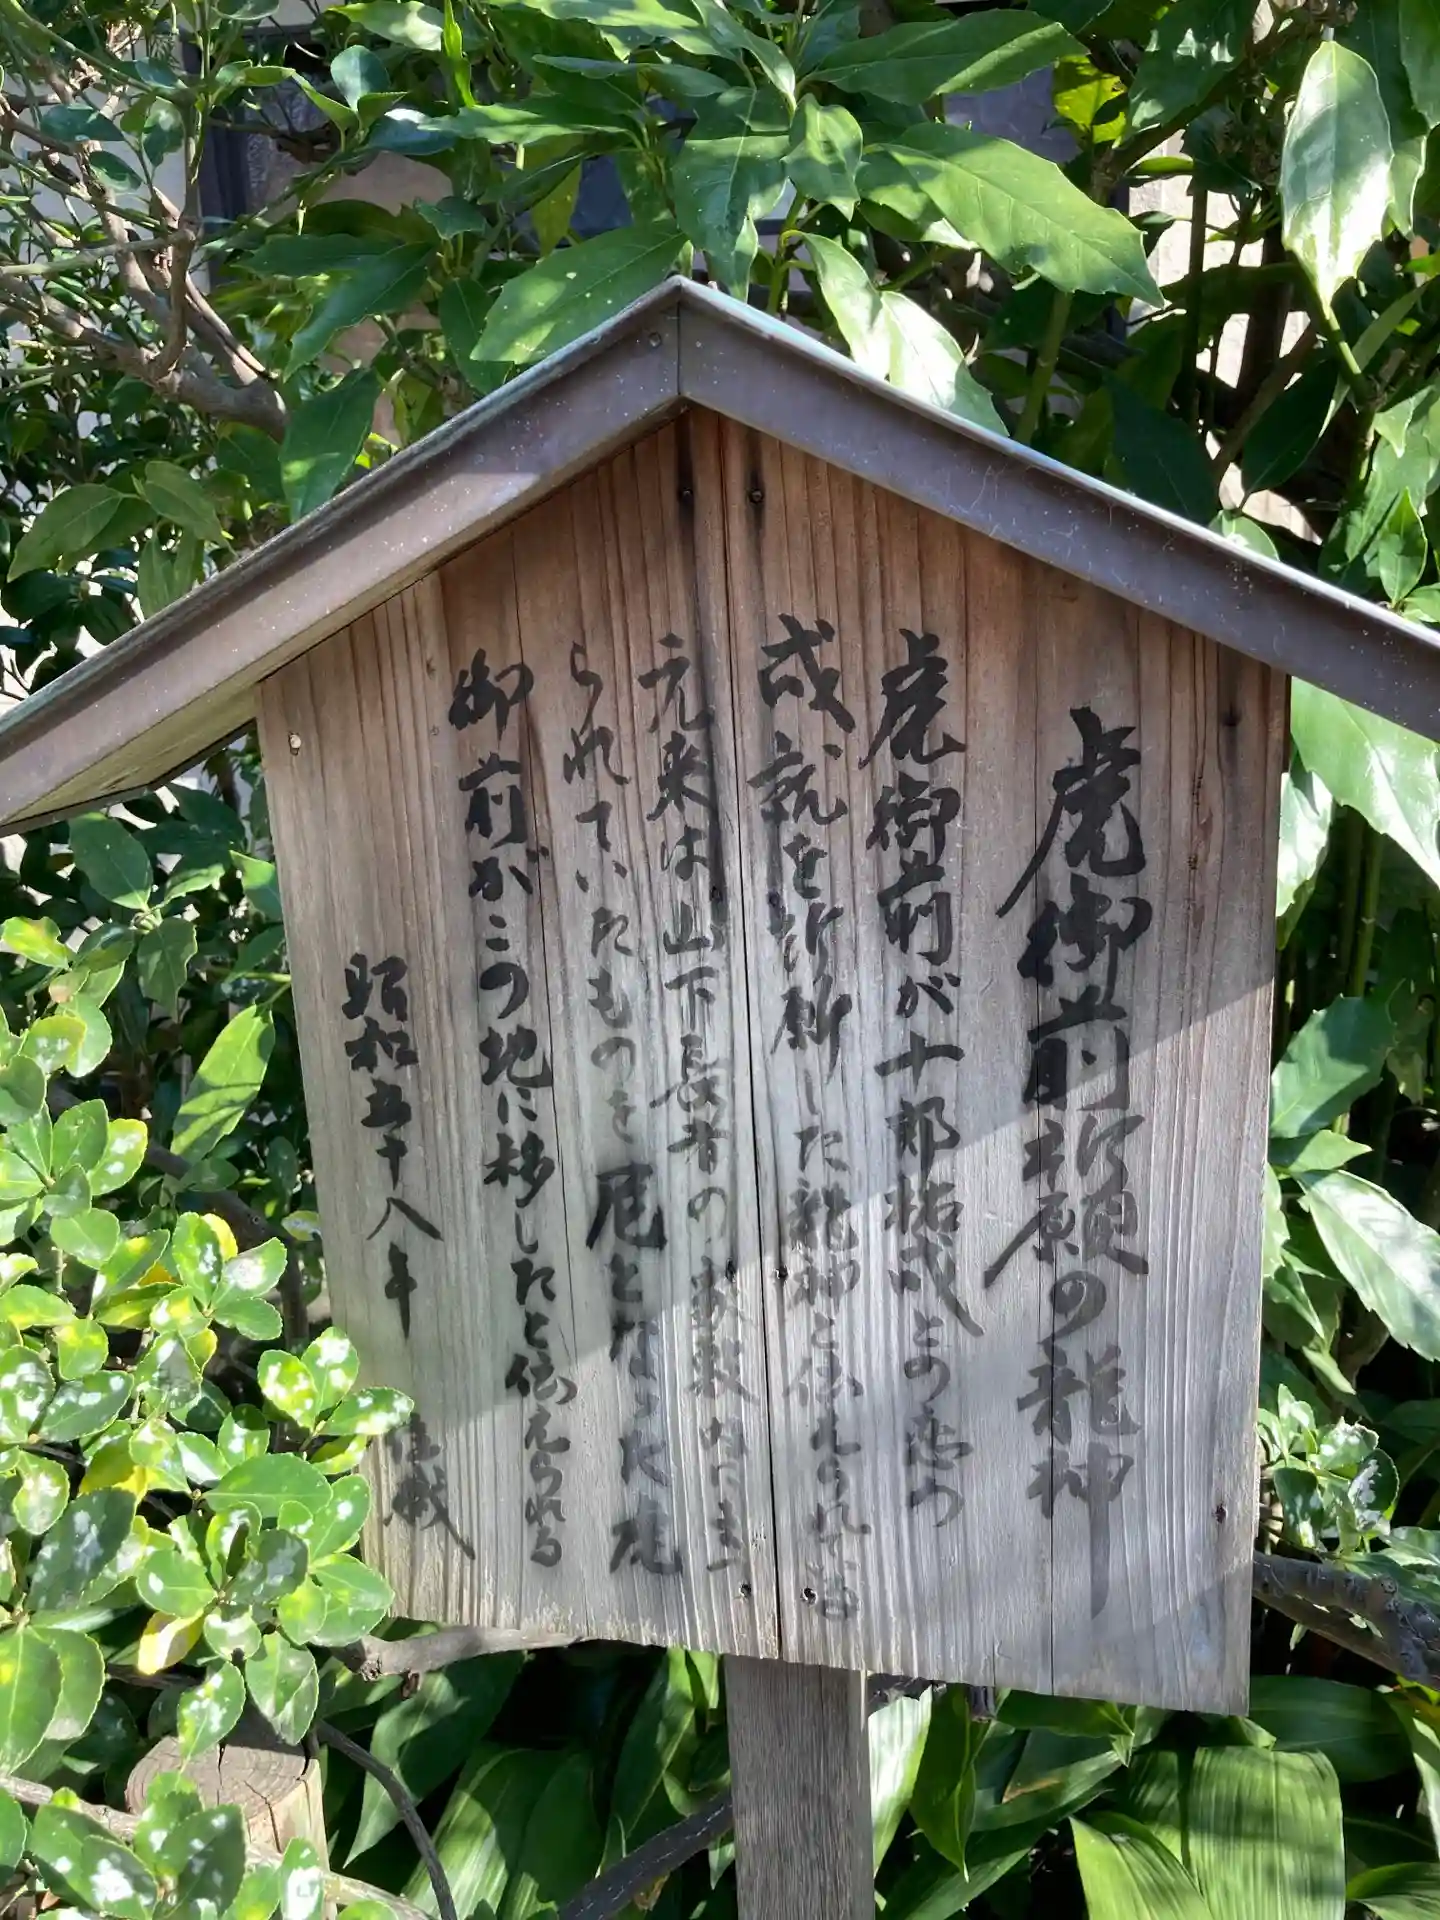 虎御前祈願の龍神
虎御前が十郎祐成との恋の
成就を祈願した龍神と伝えられている
元来は山下長者の屋敷内にまつ
られていたものを尼となった虎
御前がこの地に移したと伝えられる
昭和五十八年